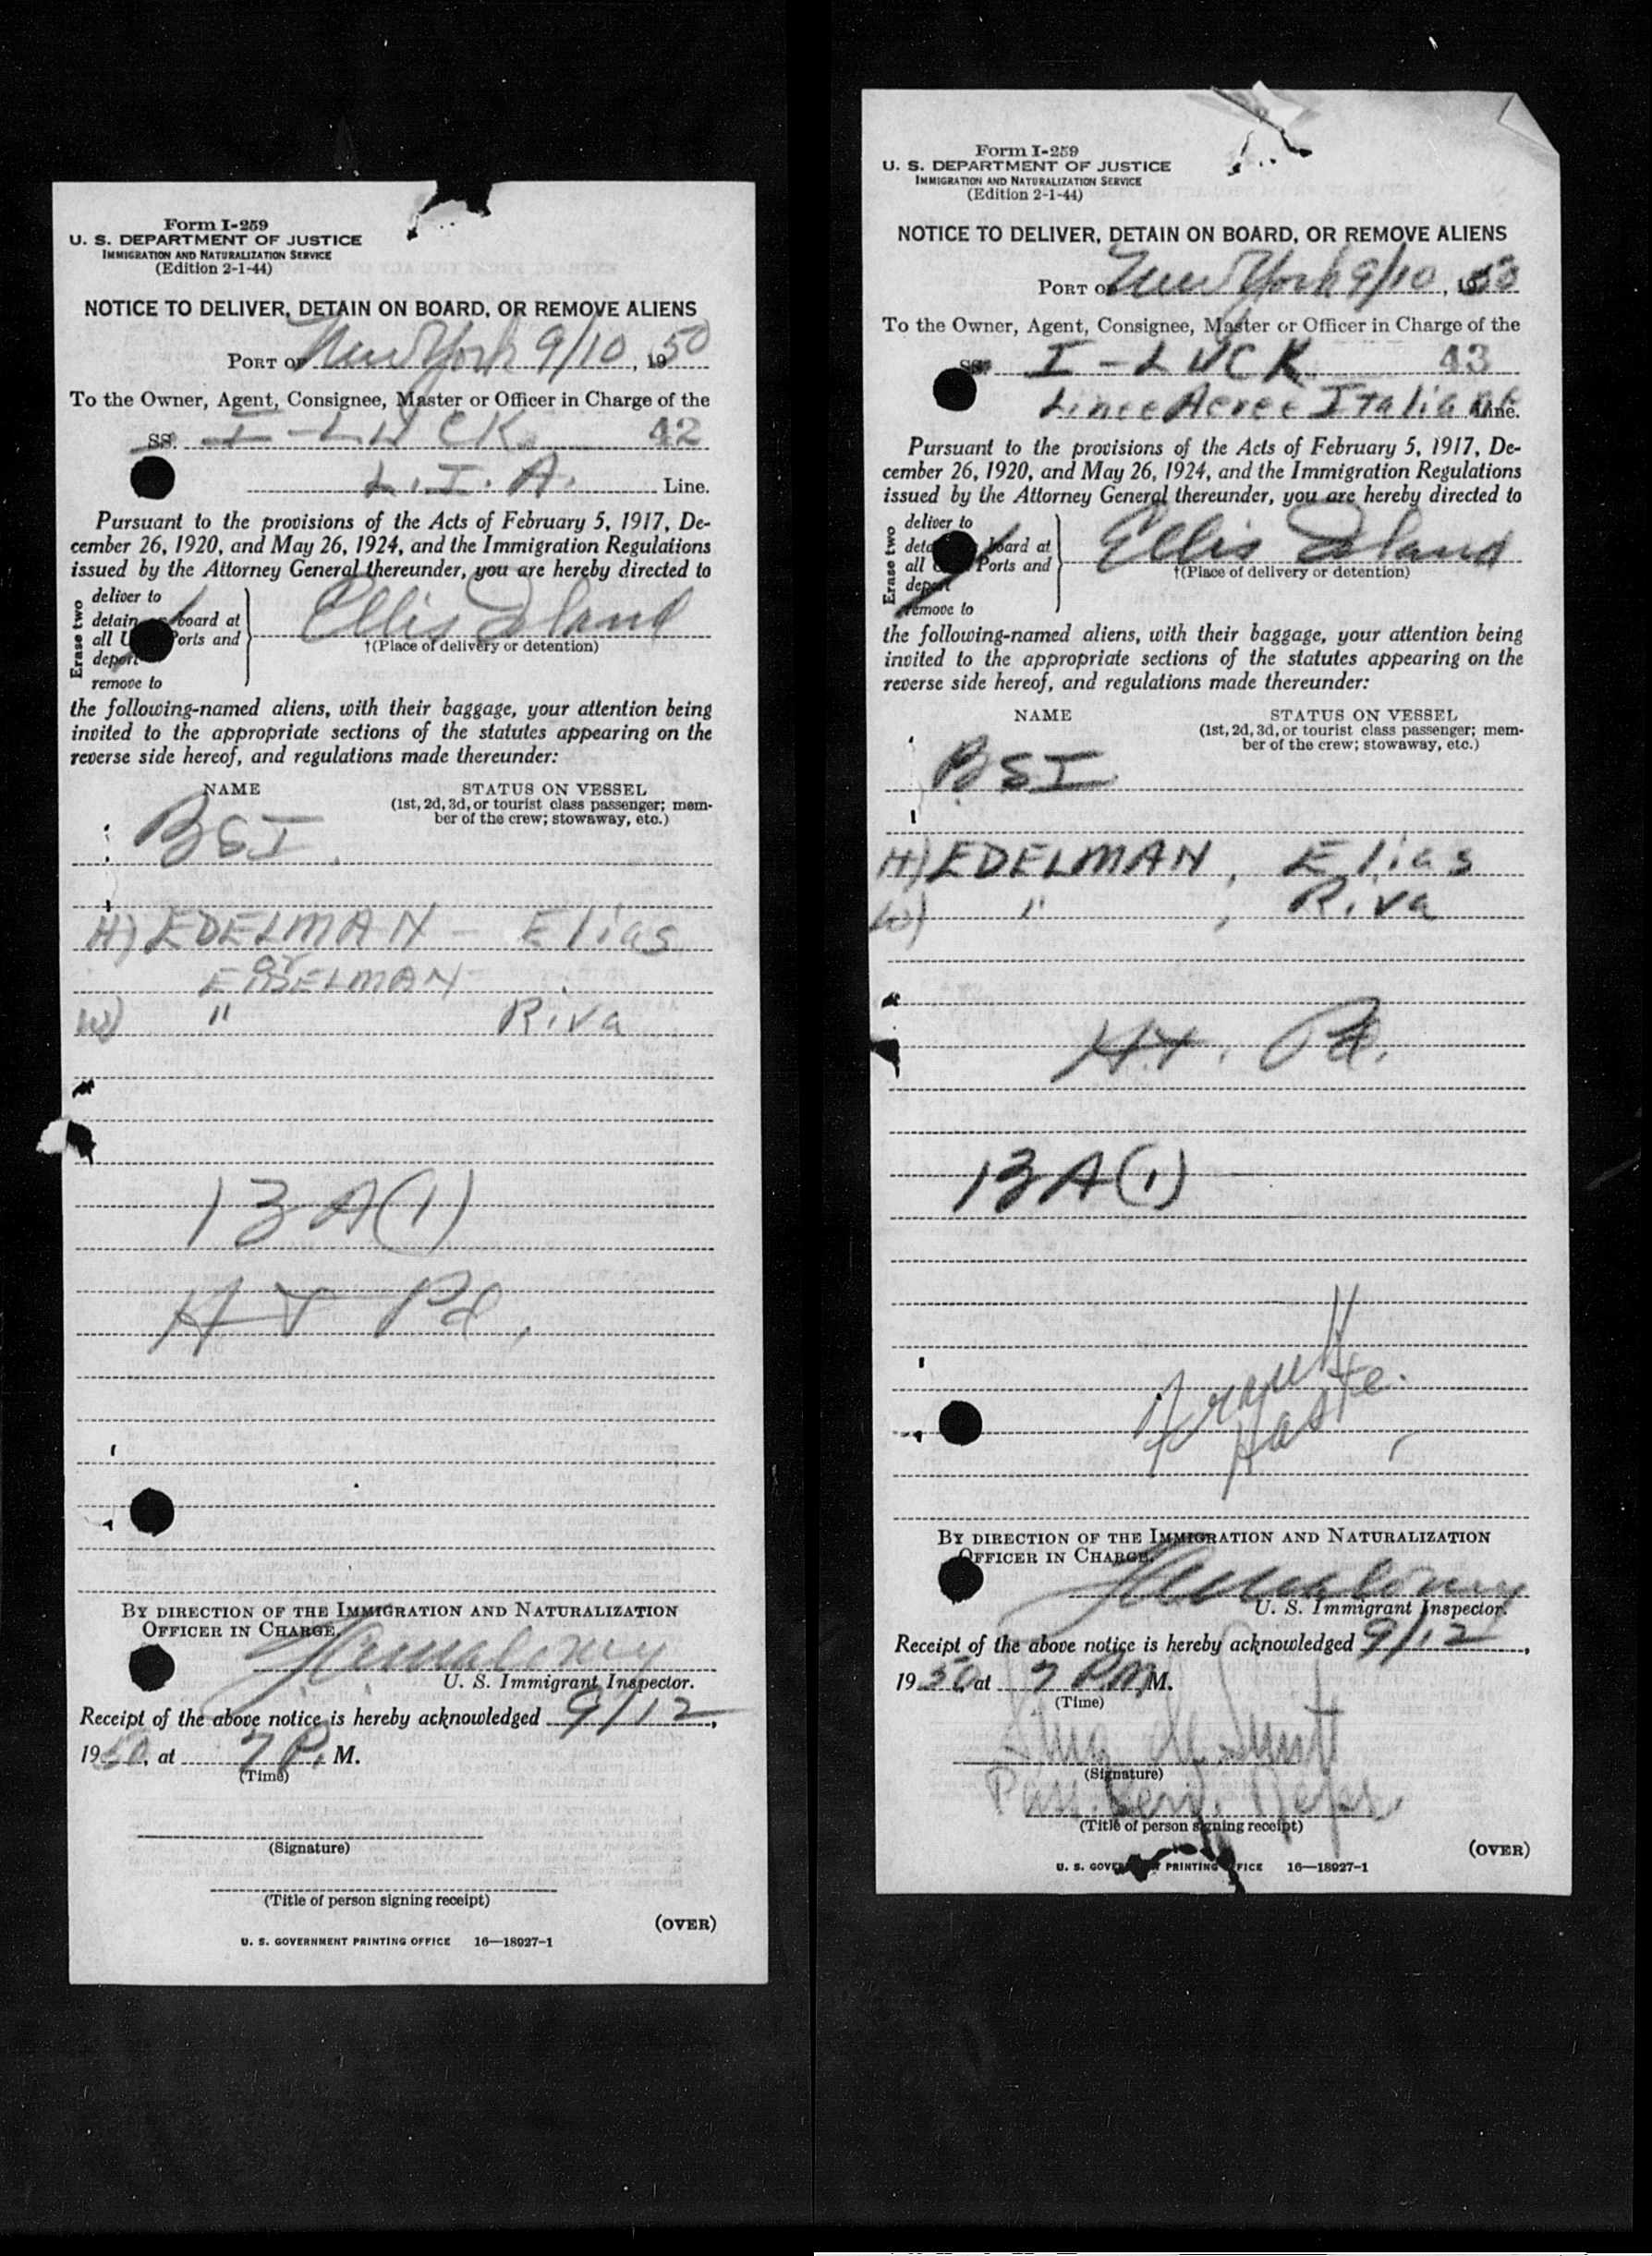 Form I-259
U. S. DEPARTMENT OF JUSTICE
IMMIGRATION AND NATURALIZATION SERVICE
(Edition 2-1-44)
NOTICE TO DELIVER, DETAIN ON BOARD, OR REMOVE ALIENS
PORT OF New York 9/10, 1950
To the Owner, Agent, Consignee, Master or Officer in Charge of the
SS. I-LUCK 42
L.I.A. Line.
Pursuant to the provisions of the Acts of February 5, 1917, De-
cember 26, 1920, and May 26, 1924, and the Immigration Regulations
issued by the Attorney General thereunder, you are hereby directed to
Erase two
deliver to
detain board at
all Ports and
deport
remove to
Ellis Island
†(Place of delivery or detention)
the following-named aliens, with their baggage, your attention being
invited to the appropriate sections of the statutes appearing on the
reverse side hereof, and regulations made thereunder:
NAME STATUS ON VESSEL
(1st, 2d, 3d, or tourist class passenger; mem-
ber of the crew; stowaway, etc.)
BSI
H) EDELMAN - Elias
or
W) " Riva
13A(1)
BY DIRECTION OF THE IMMIGRATION AND NATURALIZATION
OFFICER IN CHARGE.
U. S. Immigrant Inspector.
Receipt of the above notice is hereby acknowledged 9/12,
1950, at 7 P. M.
(Time)
(Signature)
(Title of person signing receipt)
(OVER)
U. S. GOVERNMENT PRINTING OFFICE 16—18927-1
Form I-259
U. S. DEPARTMENT OF JUSTICE
IMMIGRATION AND NATURALIZATION SERVICE
(Edition 2-1-44)
NOTICE TO DELIVER, DETAIN ON BOARD, OR REMOVE ALIENS
PORT OF New York 9/10, 1950
To the Owner, Agent, Consignee, Master or Officer in Charge of the
SS. I-LUCK 43
Line.
Pursuant to the provisions of the Acts of February 5, 1917, De-
cember 26, 1920, and May 26, 1924, and the Immigration Regulations
issued by the Attorney General thereunder, you are hereby directed to
Erase two
deliver to
board at
all Ports and
deport
remove to
Ellis Island
†(Place of delivery or detention)
the following-named aliens, with their baggage, your attention being
invited to the appropriate sections of the statutes appearing on the
reverse side hereof, and regulations made thereunder:
NAME STATUS ON VESSEL
(1st, 2d, 3d, or tourist class passenger; mem-
ber of the crew; stowaway, etc.)
BSI
H) EDELMAN, Elias
W) " , Riva
13A(1)
BY DIRECTION OF THE IMMIGRATION AND NATURALIZATION
OFFICER IN CHARGE.
U. S. Immigrant Inspector.
Receipt of the above notice is hereby acknowledged 9/12,
1950, at 7 PM M.
(Time)
(Signature)
Pass. Serv.
(Title of person signing receipt)
(OVER)
U. S. GOVERNMENT PRINTING OFFICE 16—18927-1